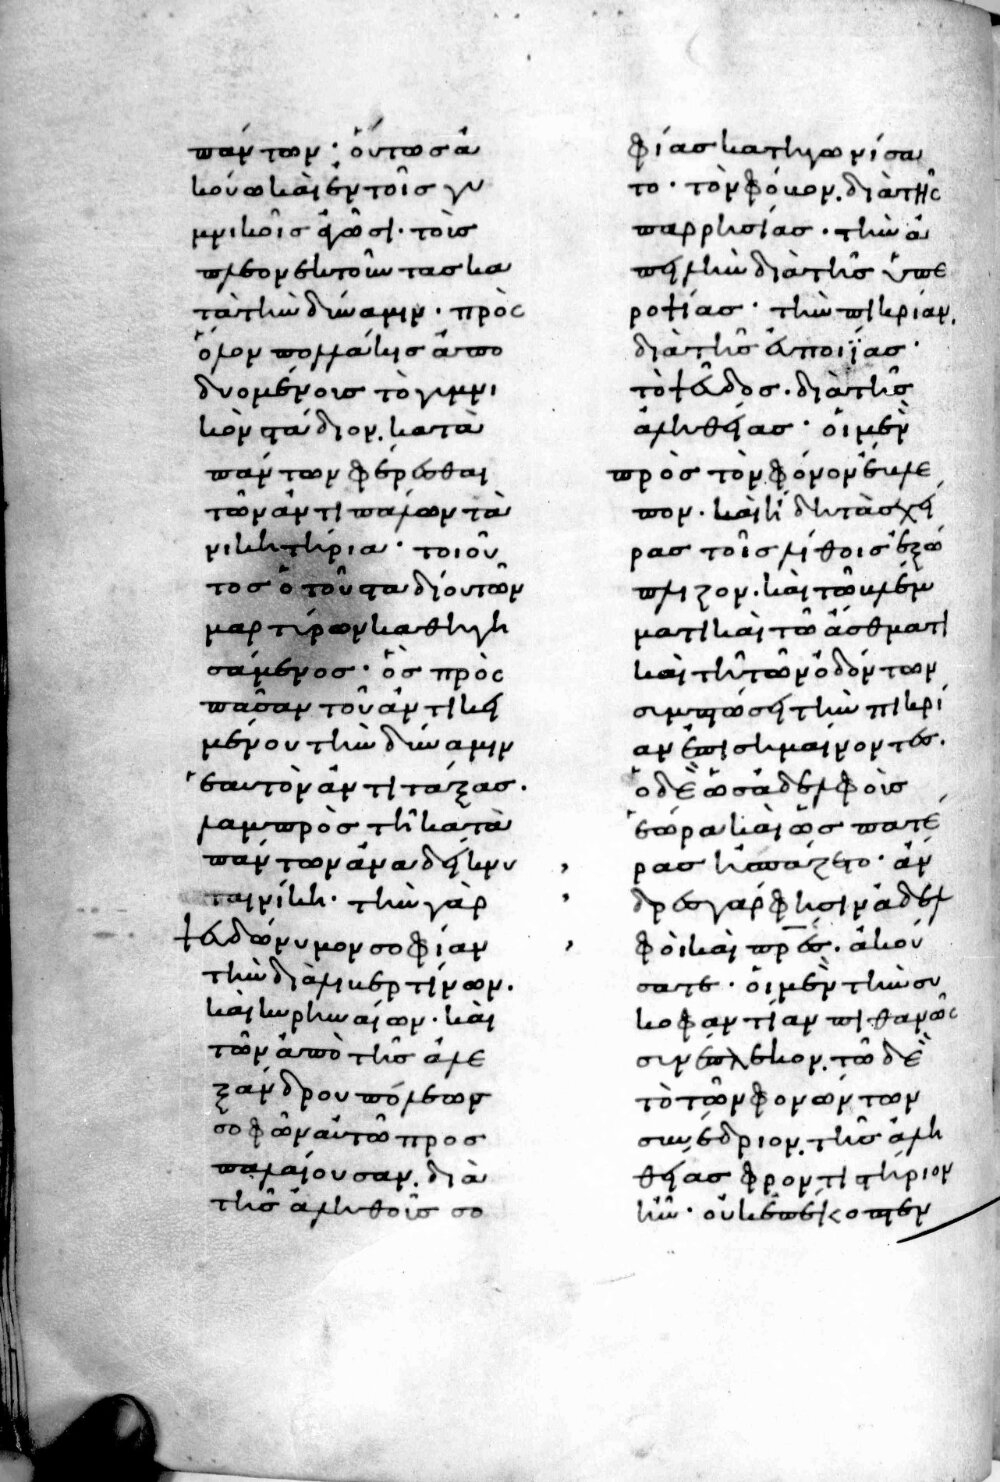 πάντων· οὕτως ἀ
κούω καὶ ἐν τοῖς γυ
μνικοῖς ἀγῶσι· τοῖς
πλεονεκτοῦντας κα
τὰ τὴν δύναμιν· πρὸς
ὅλον πολλάκις ἀπο
δυομένοις τὸ γυμνι
κὸν στάδιον. κατὰ
πάντων φέρεσθαι
τῶν ἀντιπάλων τὰ
νικητήρια· τοιοῦ
τος ὁ τοῦ σταδίου τῶν
μαρτύρων καθηγη
σάμενος· ὃς πρὸς
πᾶσαν τοῦ ἀντικει
μένου τὴν δύναμιν
ἑαυτὸν ἀντιτάξας·
λαμπρὸς τῆ κατὰ
πάντων ἀναδείκνυ
ται νίκη· τὴν γὰρ
ψευδώνυμον σοφίαν
τὴν διὰ λιβερτίνων·
καὶ κυρηναίων· καὶ
τῶν ἀπὸ τῆς ἀλε
ξάνδρου πόλεως
σοφῶν αὐτῶ προς
παλαίουσαν. διὰ
τῆς ἀληθοῦς σο
φίας κατηγωνίσα
το· τὸν φόβον. διὰ τῆς
παρρησίας· τὴν ἀ
πειλὴν διὰ τῆς ὑπε
ροψίας· τὴν πικρίαν.
διὰ τῆς εὐποιΐας·
τὸ ψεῦδος· διὰ τῆς
ἀληθείας· οἱ μὲν
πρὸς τὸν φόνον ἔβλε
πον· καὶ ἤδη τὰς χεῖ
ρας τοῖς λίθοις ἐξώ
πλιζον· καὶ τῶ βλέμ
ματι καὶ τῶ ἄσθματι
καὶ τῆ τῶν ὀδόντων
συμπτώσει τὴν πικρί
αν ἐπισημαίνοντες.
ὁ δὲ ὡς ἀδελφοὺς
ἑώρα καὶ ὡς πατέ
ρας ἠσπάζετο· ἄν
δρες γάρ φησιν ἀδελ
φοὶ καὶ πρες· ἀκού
σατε· οἱ μὲν τὴν συ
κοφαντίαν πιθανῶς
συνέπλεκον. τῶ δὲ
τὸ τῶν φονώντων
συνέδριον. τῆς ἀλη
θείας φροντιστήριον
ἦν· οὐκ ἐπέκοπτεν